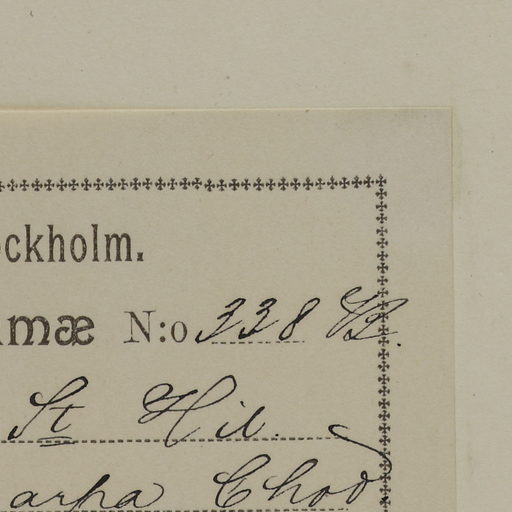 ockholm.
mæ N:o 338 B.
St Hil.
arpa Chod